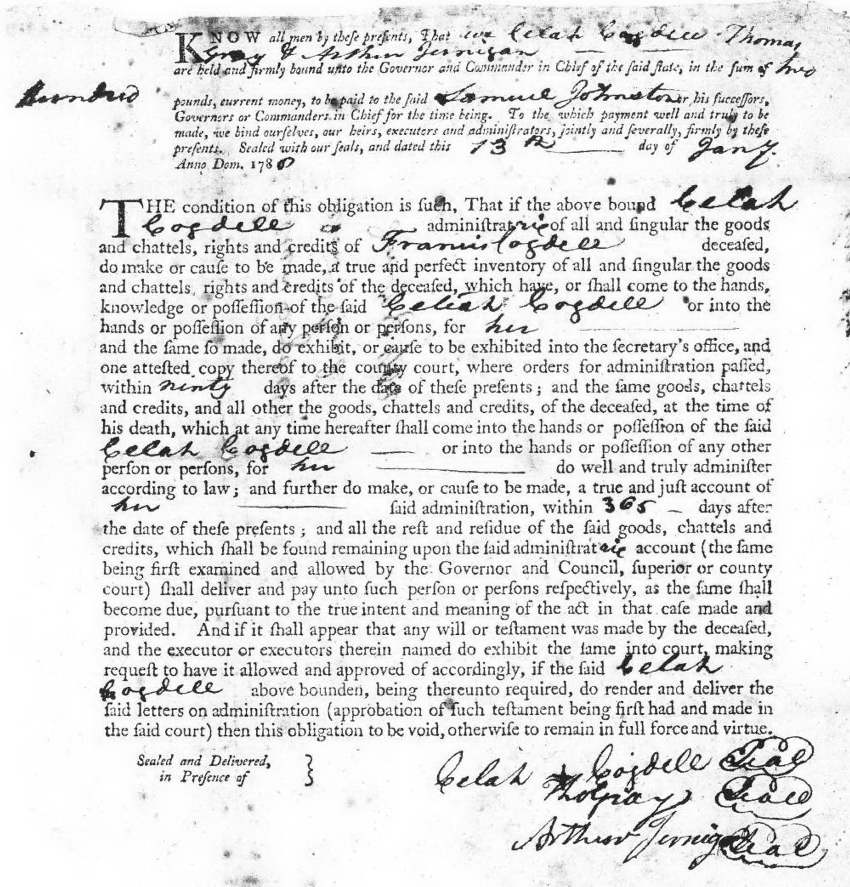 KNOW all men by these preſents, That we Celah Cogdell Thomas
Gray & Arthur Jernigan
are held and firmly bound unto the Governor and Commander in Chief of the ſaid ſtate, in the ſum of two
hundred
pounds, current money, to be paid to the ſaid Samuel Johnston or his ſucceſſors,
Governors or Commanders in Chief for the time being. To the which payment well and truly to be
made, we bind ourſelves, our heirs, executors and adminiſtrators, jointly and ſeverally, firmly by theſe
preſents. Sealed with our ſeals, and dated this 13th day of Jany.
Anno Dom. 178
THE condition of this obligation is ſuch, That if the above bound Celah
Cogdell adminiſtratrix of all and ſingular the goods
and chattels, rights and credits of Francis Cogdell deceaſed,
do make or cauſe to be made, a true and perfect inventory of all and ſingular the goods
and chattels rights and credits of the deceaſed, which have, or ſhall come to the hands,
knowledge or poſſeſſion of the ſaid Celiah Cogdell or into the
hands or poſſeſſion of any perſon or perſons, for her
and the ſame ſo made, do exhibit, or cauſe to be exhibited into the ſecretary's office, and
one atteſted copy thereof to the county court, where orders for adminiſtration paſſed,
within ninty days after the date of theſe preſents; and the ſame goods, chattels
and credits, and all other the goods, chattels and credits, of the deceaſed, at the time of
his death, which at any time hereafter ſhall come into the hands or poſſeſſion of the ſaid
Celah Cogdell or into the hands or poſſeſſion of any other
perſon or perſons, for her do well and truly adminiſter
according to law; and further do make, or cauſe to be made, a true and juſt account of
her ſaid adminiſtration, within 365 days after
the date of theſe preſents; and all the reſt and reſidue of the ſaid goods, chattels and
credits, which ſhall be found remaining upon the ſaid adminiſtratrix account (the ſame
being firſt examined and allowed by the Governor and Council, ſuperior or county
court) ſhall deliver and pay unto ſuch perſon or perſons reſpectively, as the ſame ſhall
become due, purſuant to the true intent and meaning of the act in that caſe made and
provided. And if it ſhall appear that any will or teſtament was made by the deceaſed,
and the executor or executors therein named do exhibit the ſame into court, making
requeſt to have it allowed and approved of accordingly, if the ſaid Celah
Cogdell above bounden, being thereunto required, do render and deliver the
ſaid letters on adminiſtration (approbation of ſuch teſtament being firſt had and made in
the ſaid court) then this obligation to be void, otherwiſe to remain in full force and virtue.
Sealed and Delivered,
in Preſence of
Celah Cogdell Seal
Tho Gray Seall
Arthur Jernigan Seal